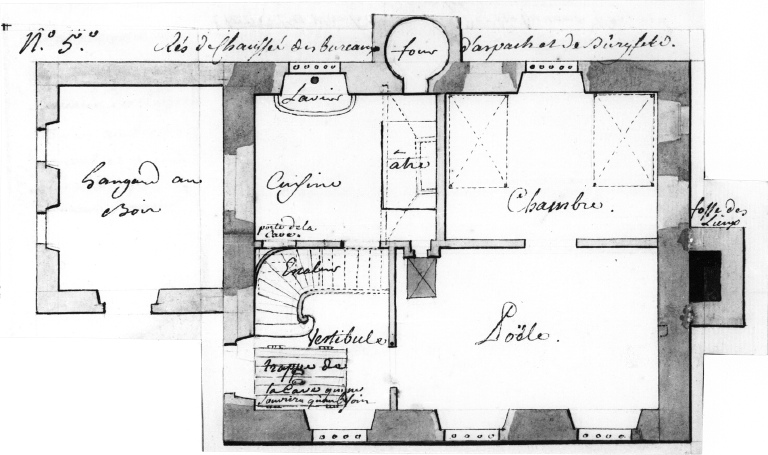 N.º 5.º
Rés de Chaussée des bureaux d'aspach et de Burgfeld.
four
Lavier
hangard au
Bois
Cuisine
âtre
Chambre.
fosse des
Lieux
porte de la
Cave.
Escalier
Vestibule
Poöle.
trappe de
la Cave qui ne
s'ouvrira qu'au besoin